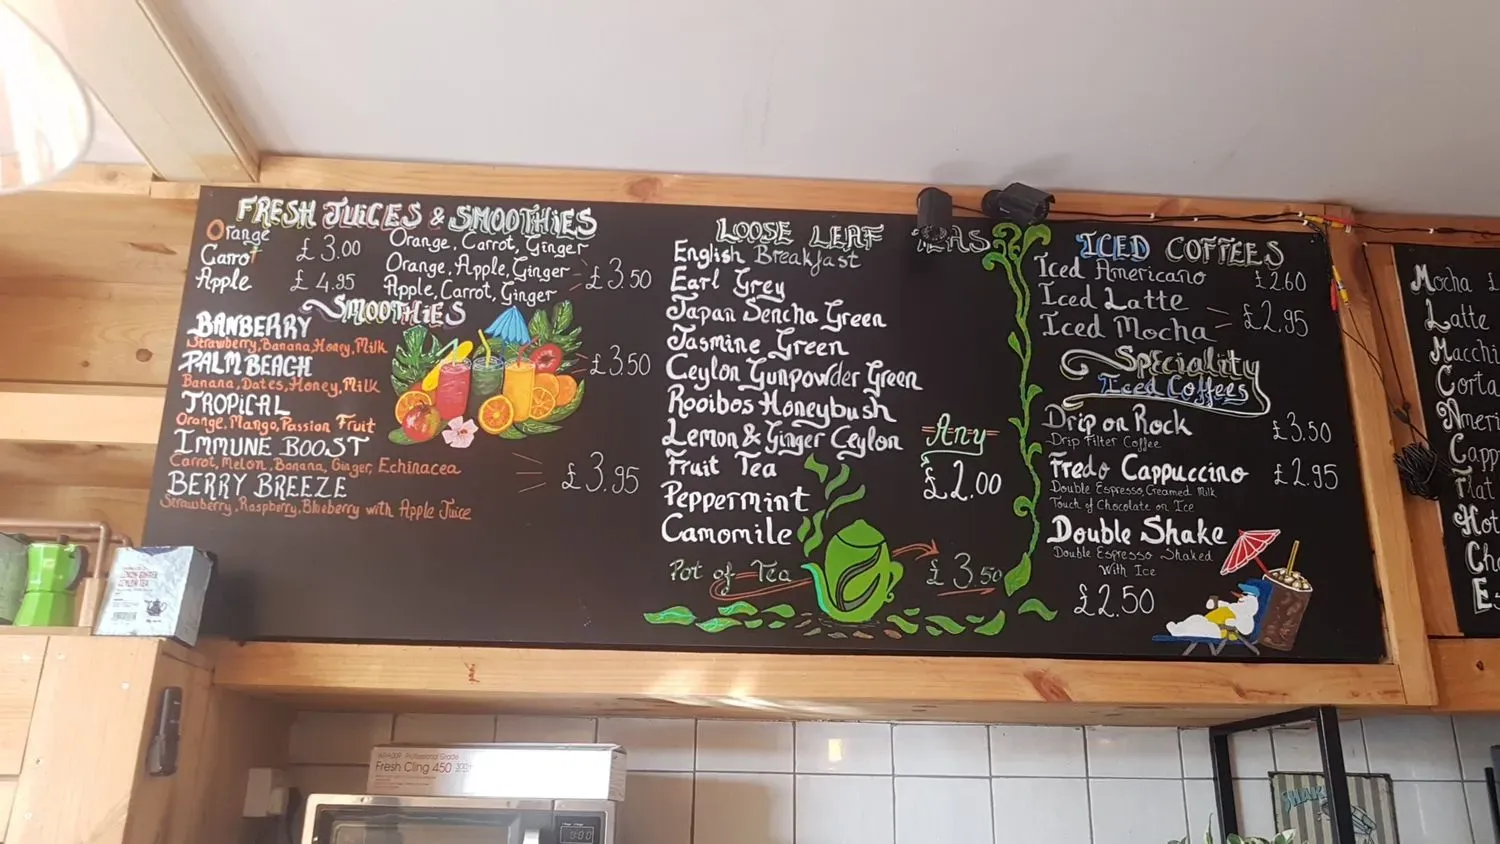 FRESH JUICES & SMOOTHIES
Orange
Carrot
Apple
£ 3.00
£ 4.95
Orange, Carrot, Ginger
Orange, Apple, Ginger
Apple, Carrot, Ginger
£3.50
SMOOTHIES
BANBERRY
Strawberry, Banana, Honey, Milk
PALM BEACH
Banana, Dates, Honey, Milk
£3.50
TROPICAL
Orange, Mango, Passion Fruit
IMMUNE BOOST
Carrot, Melon, Banana, Ginger, Echinacea
BERRY BREEZE
Strawberry, Raspberry, Blueberry with Apple Juice
£3.95
LOOSE LEAF TEAS
English Breakfast
Earl Grey
Japan Sencha Green
Jasmine Green
Ceylon Gunpowder Green
Rooibos Honeybush
Lemon & Ginger Ceylon
Fruit Tea
Peppermint
Camomile
Any
£2.00
Pot of Tea
£3.50
ICED COFFEES
Iced Americano £2.60
Iced Latte
Iced Mocha
£2.95
Speciality
Iced Coffees
Drip on Rock £3.50
Drip Filter Coffee
Fredo Cappuccino £2.95
Double Espresso, Creamed Milk
Touch of Chocolate on Ice
Double Shake
Double Espresso Shaked
With Ice
£2.50
Mocha £
Latte
Macchi
Corta
Ameri
Capp
Flat
Hot
Ch
Es
LEMON GINGER
CEYLON TEA
Professional Grade
Fresh Cling 450